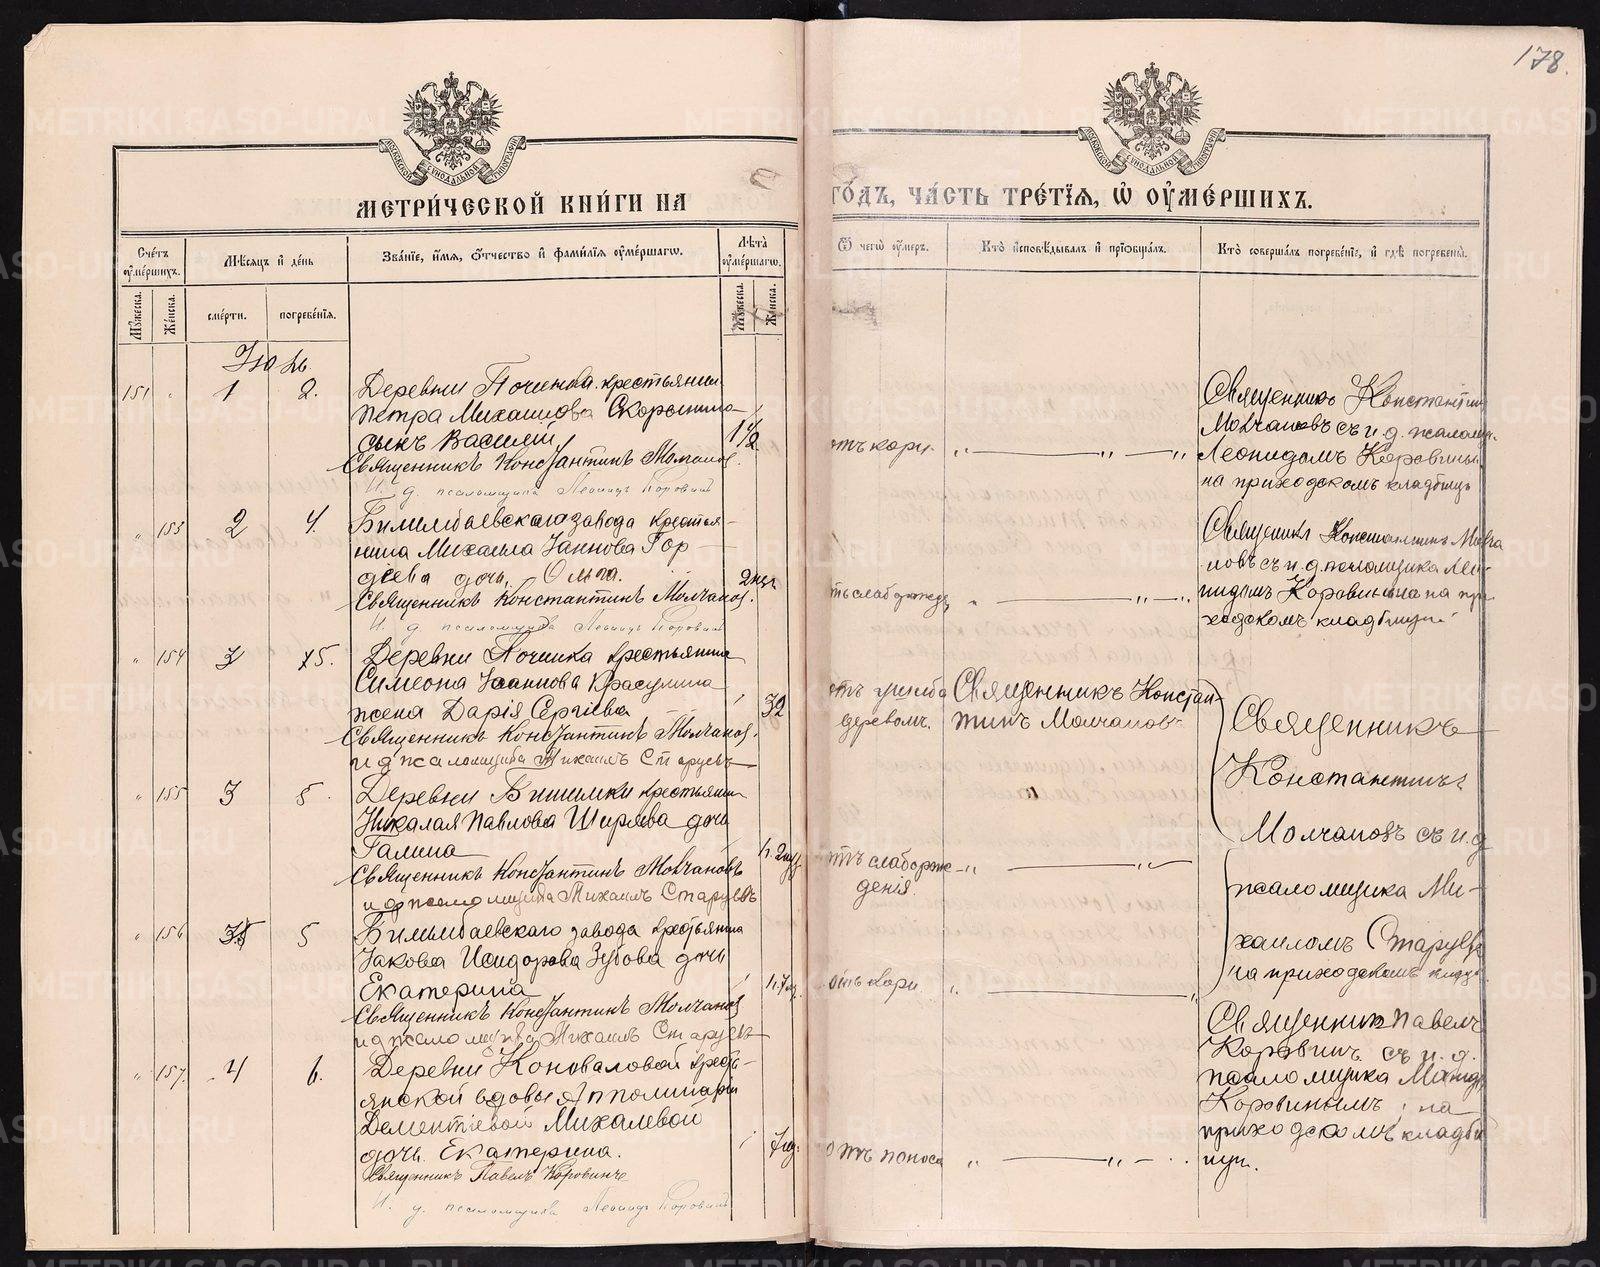 178.
МОСКОВСКОЙ СѴНОДАЛЬНОЙ ТИПОГРАФІИ
МОСКОВСКОЙ СѴНОДАЛЬНОЙ ТИПОГРАФІИ
МЕТРИ́ЧЕСКОЙ КНИ́ГИ НА
ГО́ДЪ, ЧА́СТЬ ТРЕ́ТЇЯ, Ѡ҆ ОУ҆МЕ́РШИХЪ.
Сче́тъ оу҆ме́ршихъ.
Мѣ́сяцъ и҆ де́нь
Зва́нїе, и҆́мя, ѻ҆́тчество и҆ фами́лїя оу҆ме́ршагѡ.
Лѣ́та оу҆ме́ршагѡ.
Ѿ чегѡ̀ оу҆́меръ.
Кто̀ и҆сповѣ́дывалъ и҆ прїѡбща́лъ.
Кто̀ соверша́лъ погребе́нїе, и҆ гдѣ̀ погребены̀.
Мꙋ́жеска.
Же́нска.
сме́рти.
погребе́нїя.
Мꙋ́жеска.
Же́нска.
Іюль.
151 " 1 2.
Деревни Починка крестьянина
Петра Михаилова Скорынина
сынъ Василій
1 1/2
Священникъ Константинъ Молчановъ.
И. д. псаломщика Леонидъ Коровинъ
отъ кори.
Священникъ Константинъ
Молчановъ съ и. д. псаломщ.
Леонидомъ Коровинымъ
на приходскомъ кладбищѣ
" 153 2 4.
Билимбаевскаго завода крестья-
нина Михаила Іаннова Гор
дѣева дочь Ольга.
2 нед.
Священникъ Константинъ Молчановъ.
И. д. псаломщика Леонидъ Коровинъ
отъ слаб. рожд.
Священникъ Константинъ Молча
новъ съ и. д. псаломщика Лео-
нидомъ Коровинымъ на при
ходскомъ кладбищѣ
" 154 3 5.
Деревни Починка крестьянина
Симеона Іоаннова Красулина
жена Дарія Сергіева
32
Священникъ Константинъ Молчановъ.
и д псаломщика Михаилъ Старцевъ
деревомъ.
Священникъ Констан-
тинъ Молчановъ
Священникъ
Константинъ
Молчановъ съ и. д
псаломщика Ми-
хаиломъ Старцев
на приходскомъ кладб.
" 155 3 5.
Деревни Битимки крестьянина
Николая Павлова Ширяева дочь
Галина
н. 2 нед
Священникъ Константинъ Молчановъ
и д псаломщика Михаилъ Старцевъ
отъ слаб. рож-
денія.
" 156 3 5
Билимбаевскаго завода крестьянина
Іакова Исидорова Зубова дочь
Екатерина
Священникъ Константинъ Молчановъ
и д псаломщика Михаилъ Старцевъ
отъ кори.
" 157. 4 6.
Деревни Коноваловой кресть-
янской вдовы Апполинаріи
Дементіевой Михалевой
дочь Екатерина.
Священникъ Павелъ Коровинъ
И. д. псаломщика Леонидъ Коровинъ
отъ поноса
Священникъ Павелъ
Коровинъ съ и. д.
псаломщика
Коровинымъ на
приходскомъ кладби
щѣ.
METRIKI.GASO-URAL.RU